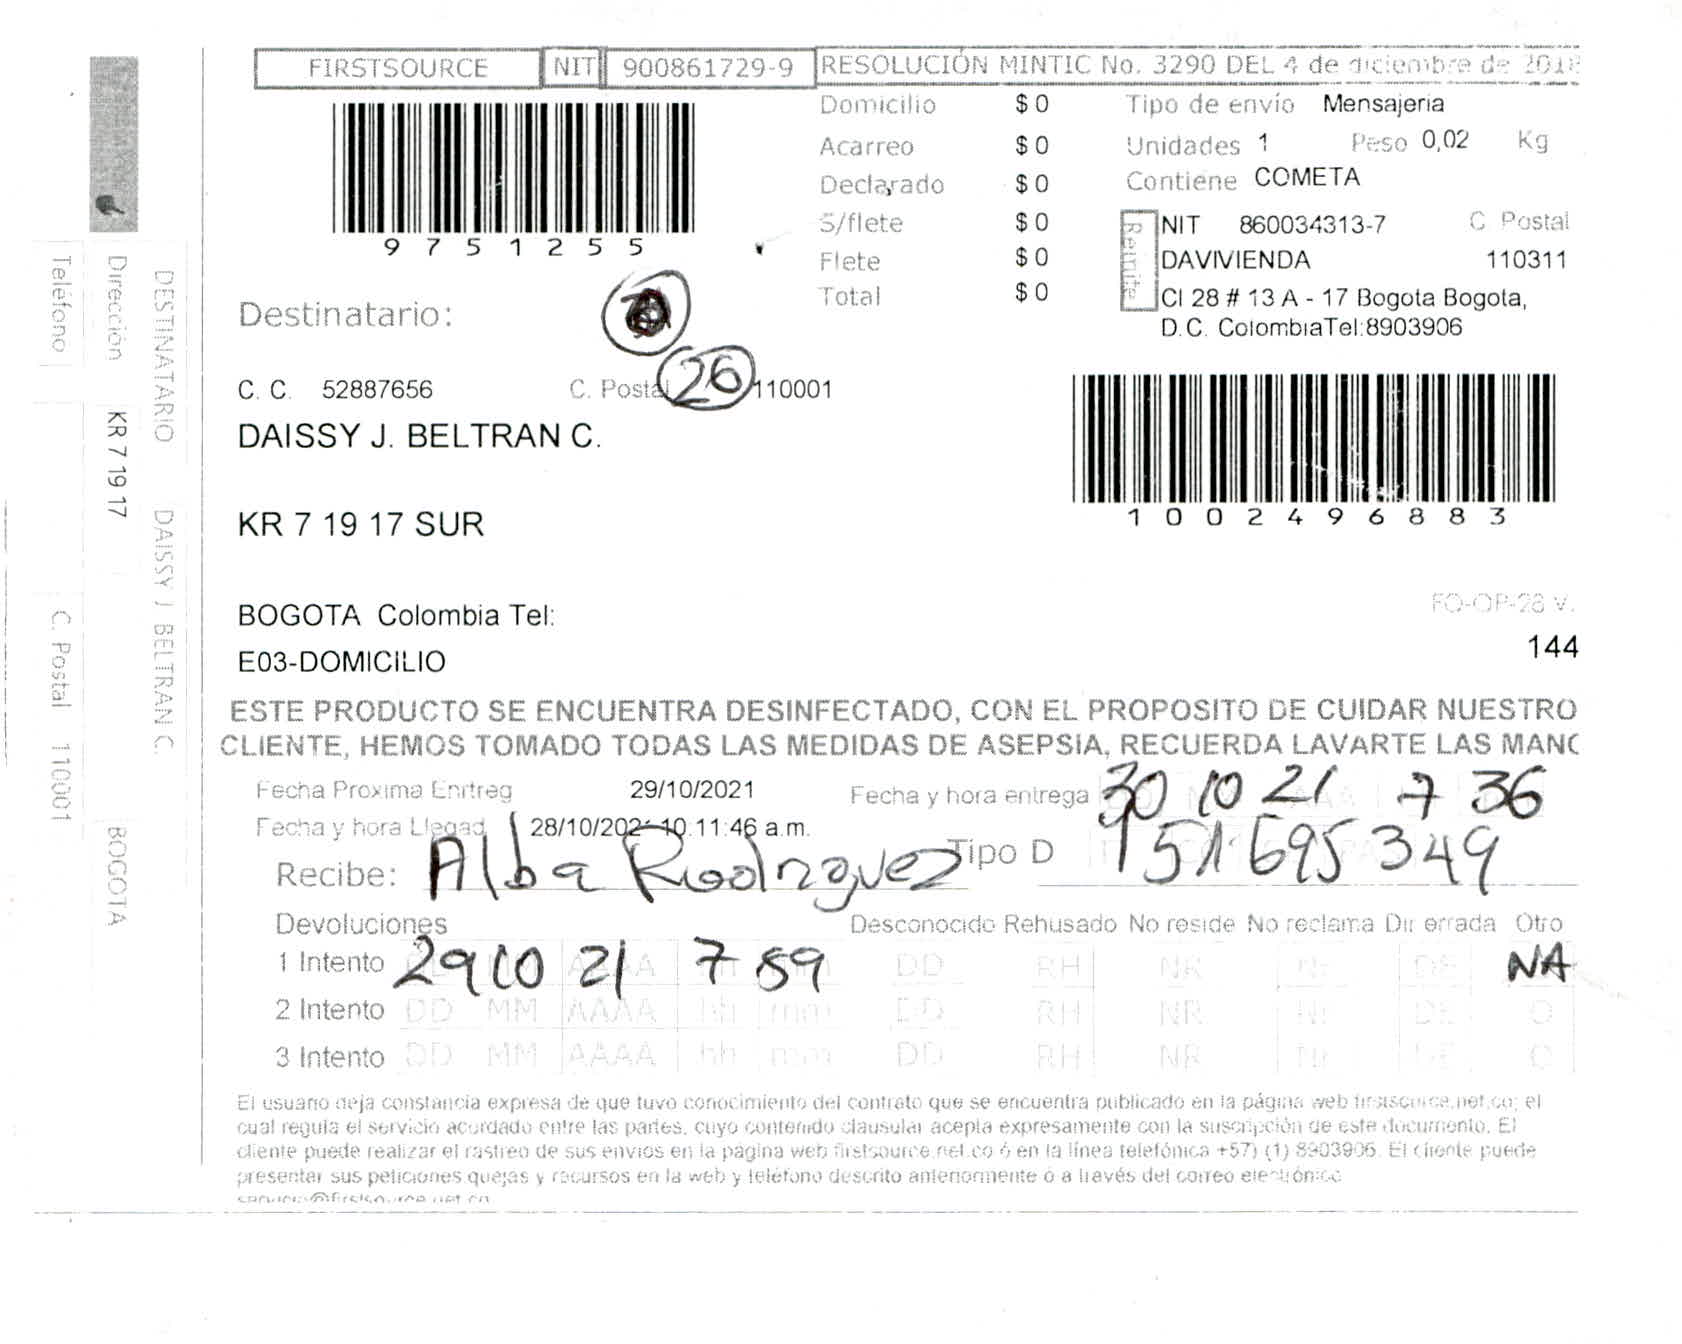 FIRSTSOURCE NIT 900861729-9 RESOLUCIÓN MINTIC No. 3290 DEL 4 de diciembre de 2018
Domicilio $ 0 Tipo de envío Mensajeria
Acarreo $ 0 Unidades 1 Peso 0,02 Kg
Declarado $ 0 Contiene COMETA
S/flete $ 0
Flete $ 0
Total $ 0
9 7 5 1 2 5 5
Remite
NIT 860034313-7 C Postal
DAVIVIENDA 110311
Cl 28 # 13 A - 17 Bogota Bogota,
D.C. ColombiaTel:8903906
Destinatario:
26
C. C. 52887656 C. Postal 110001
DAISSY J. BELTRAN C.
1 0 0 2 4 9 6 8 8 3
KR 7 19 17 SUR
BOGOTA Colombia Tel:
FO-OP-28 V.
144
E03-DOMICILIO
ESTE PRODUCTO SE ENCUENTRA DESINFECTADO, CON EL PROPOSITO DE CUIDAR NUESTRO
CLIENTE, HEMOS TOMADO TODAS LAS MEDIDAS DE ASEPSIA, RECUERDA LAVARTE LAS MANC
Fecha Proxima Entreg 29/10/2021 Fecha y hora entrega 30 10 21 7 36
Fecha y hora Llegad 28/10/2021 10:11:46 a.m.
Recibe: Alba Rodriguez Tipo D 1 51695349
Devoluciones Desconocido Rehusado No reside No reclama Dir errada Otro
1 Intento 29 10 21 7 59 DD RH NR Nr DE NA
2 Intento DD MM AAAA hh mm DD RH NR Nr DE O
3 Intento DD MM AAAA hh mm DD RH NR Nr DE O
El usuario deja constancia expresa de que tuvo conocimiento del contrato que se encuentra publicado en la página web firstsource.net.co; el
cual regula el servicio acordado entre las partes, cuyo contenido clausular acepta expresamente con la suscripción de este documento. El
cliente puede realizar el rastreo de sus envios en la página web firstsource.net.co ó en la línea telefónica +57) (1) 8903906. El cliente puede
presentar sus peticiones quejas y recursos en la web y teléfono descrito anteriormente ó a través del correo electrónico
servicio@firstsource.net.co
DESTINATARIO DAISSY J BELTRAN C.
Dirección KR 7 19 17 BOGOTA
Teléfono C. Postal 110001